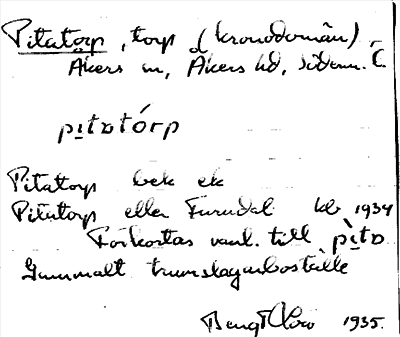 Pitatorp, torp (kronodomän)
Åkers sn, Åkers hd, Söderm. l.
pı̣tɒtórp
Pitatorp bek ek
Pitatorp eller Furudal kb 1934
Förkortas vanl. till pı̣̀tɒ
Gammalt trumslagarboställe
Bengt 1935.